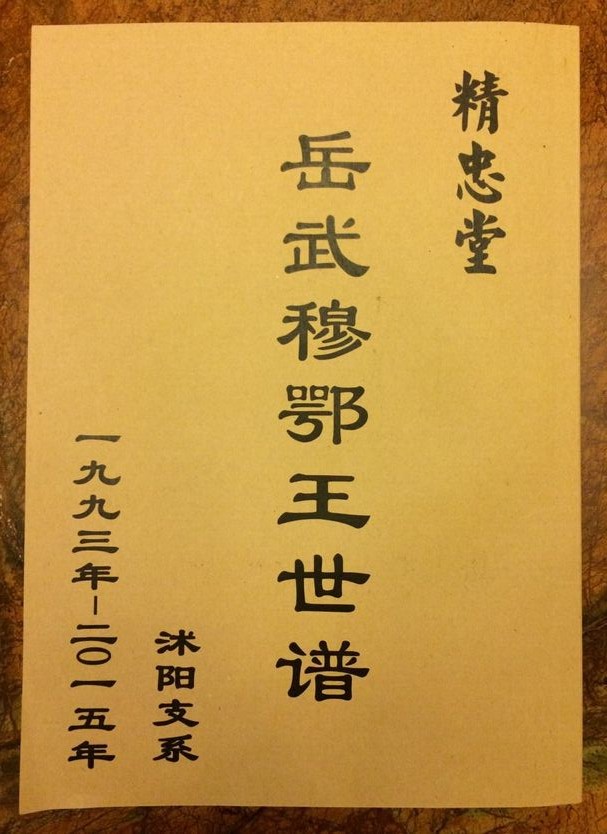 精忠堂
岳武穆鄂王世谱
沭阳支系
一九九三年－二〇一五年